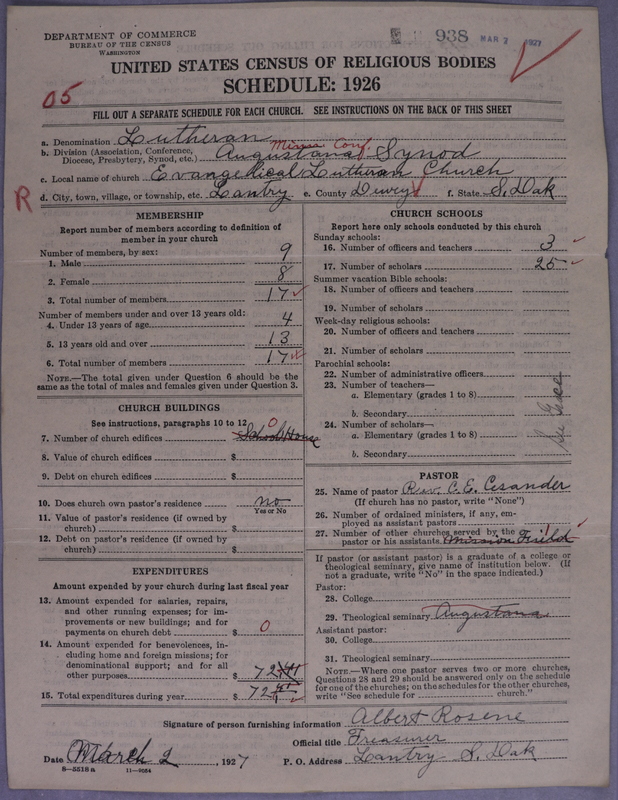 DEPARTMENT OF COMMERCE
BUREAU OF THE CENSUS
WASHINGTON
938 MAR 2 1927
UNITED STATES CENSUS OF RELIGIOUS BODIES
SCHEDULE: 1926
05
FILL OUT A SEPARATE SCHEDULE FOR EACH CHURCH. SEE INSTRUCTIONS ON THE BACK OF THIS SHEET
a. Denomination Lutheran
b. Division (Association, Conference, Diocese, Presbytery, Synod, etc.) Augustana Synod Minn Conf.
c. Local name of church Evangelical Lutheran Church
R d. City, town, village, or township, etc. Lantry e. County Dewey f. State S. Dak
MEMBERSHIP
Report number of members according to definition of
member in your church
Number of members, by sex:
1. Male 9
2. Female 8
3. Total number of members 17
Number of members under and over 13 years old:
4. Under 13 years of age 4
5. 13 years old and over 13
6. Total number of members 17
NOTE.—The total given under Question 6 should be the
same as the total of males and females given under Question 3.
CHURCH BUILDINGS
See instructions, paragraphs 10 to 12
7. Number of church edifices School House 0
8. Value of church edifices $
9. Debt on church edifices $
10. Does church own pastor's residence no
Yes or No
11. Value of pastor's residence (if owned by
church) $
12. Debt on pastor's residence (if owned by
church) $
EXPENDITURES
Amount expended by your church during last fiscal year
13. Amount expended for salaries, repairs,
and other running expenses; for im-
provements or new buildings; and for
payments on church debt $ 0
14. Amount expended for benevolences, in-
cluding home and foreign missions; for
denominational support; and for all
other purposes $ 72
15. Total expenditures during year $ 72
CHURCH SCHOOLS
Report here only schools conducted by this church
Sunday schools:
16. Number of officers and teachers 3
17. Number of scholars 25
Summer vacation Bible schools:
18. Number of officers and teachers
19. Number of scholars
Week-day religious schools:
20. Number of officers and teachers
21. Number of scholars
Parochial schools:
22. Number of administrative officers
23. Number of teachers—
a. Elementary (grades 1 to 8)
b. Secondary
24. Number of scholars—
a. Elementary (grades 1 to 8)
b. Secondary
PASTOR
25. Name of pastor Rev. C. E. Cesander
(If church has no pastor, write "None")
26. Number of ordained ministers, if any, em-
ployed as assistant pastors
27. Number of other churches served by the
pastor or his assistants Mission Field
If pastor (or assistant pastor) is a graduate of a college or
theological seminary, give name of institution below. (If
not a graduate, write "No" in the space indicated.)
Pastor:
28. College
29. Theological seminary Augustana
Assistant pastor:
30. College
31. Theological seminary
NOTE.—Where one pastor serves two or more churches,
Questions 28 and 29 should be answered only on the schedule
for one of the churches; on the schedules for the other churches,
write "See schedule for church."
Signature of person furnishing information Albert Rosene
Official title Treasurer
Date March 2, 1927 P. O. Address Lantry S. Dak
8—5518a 11—9054